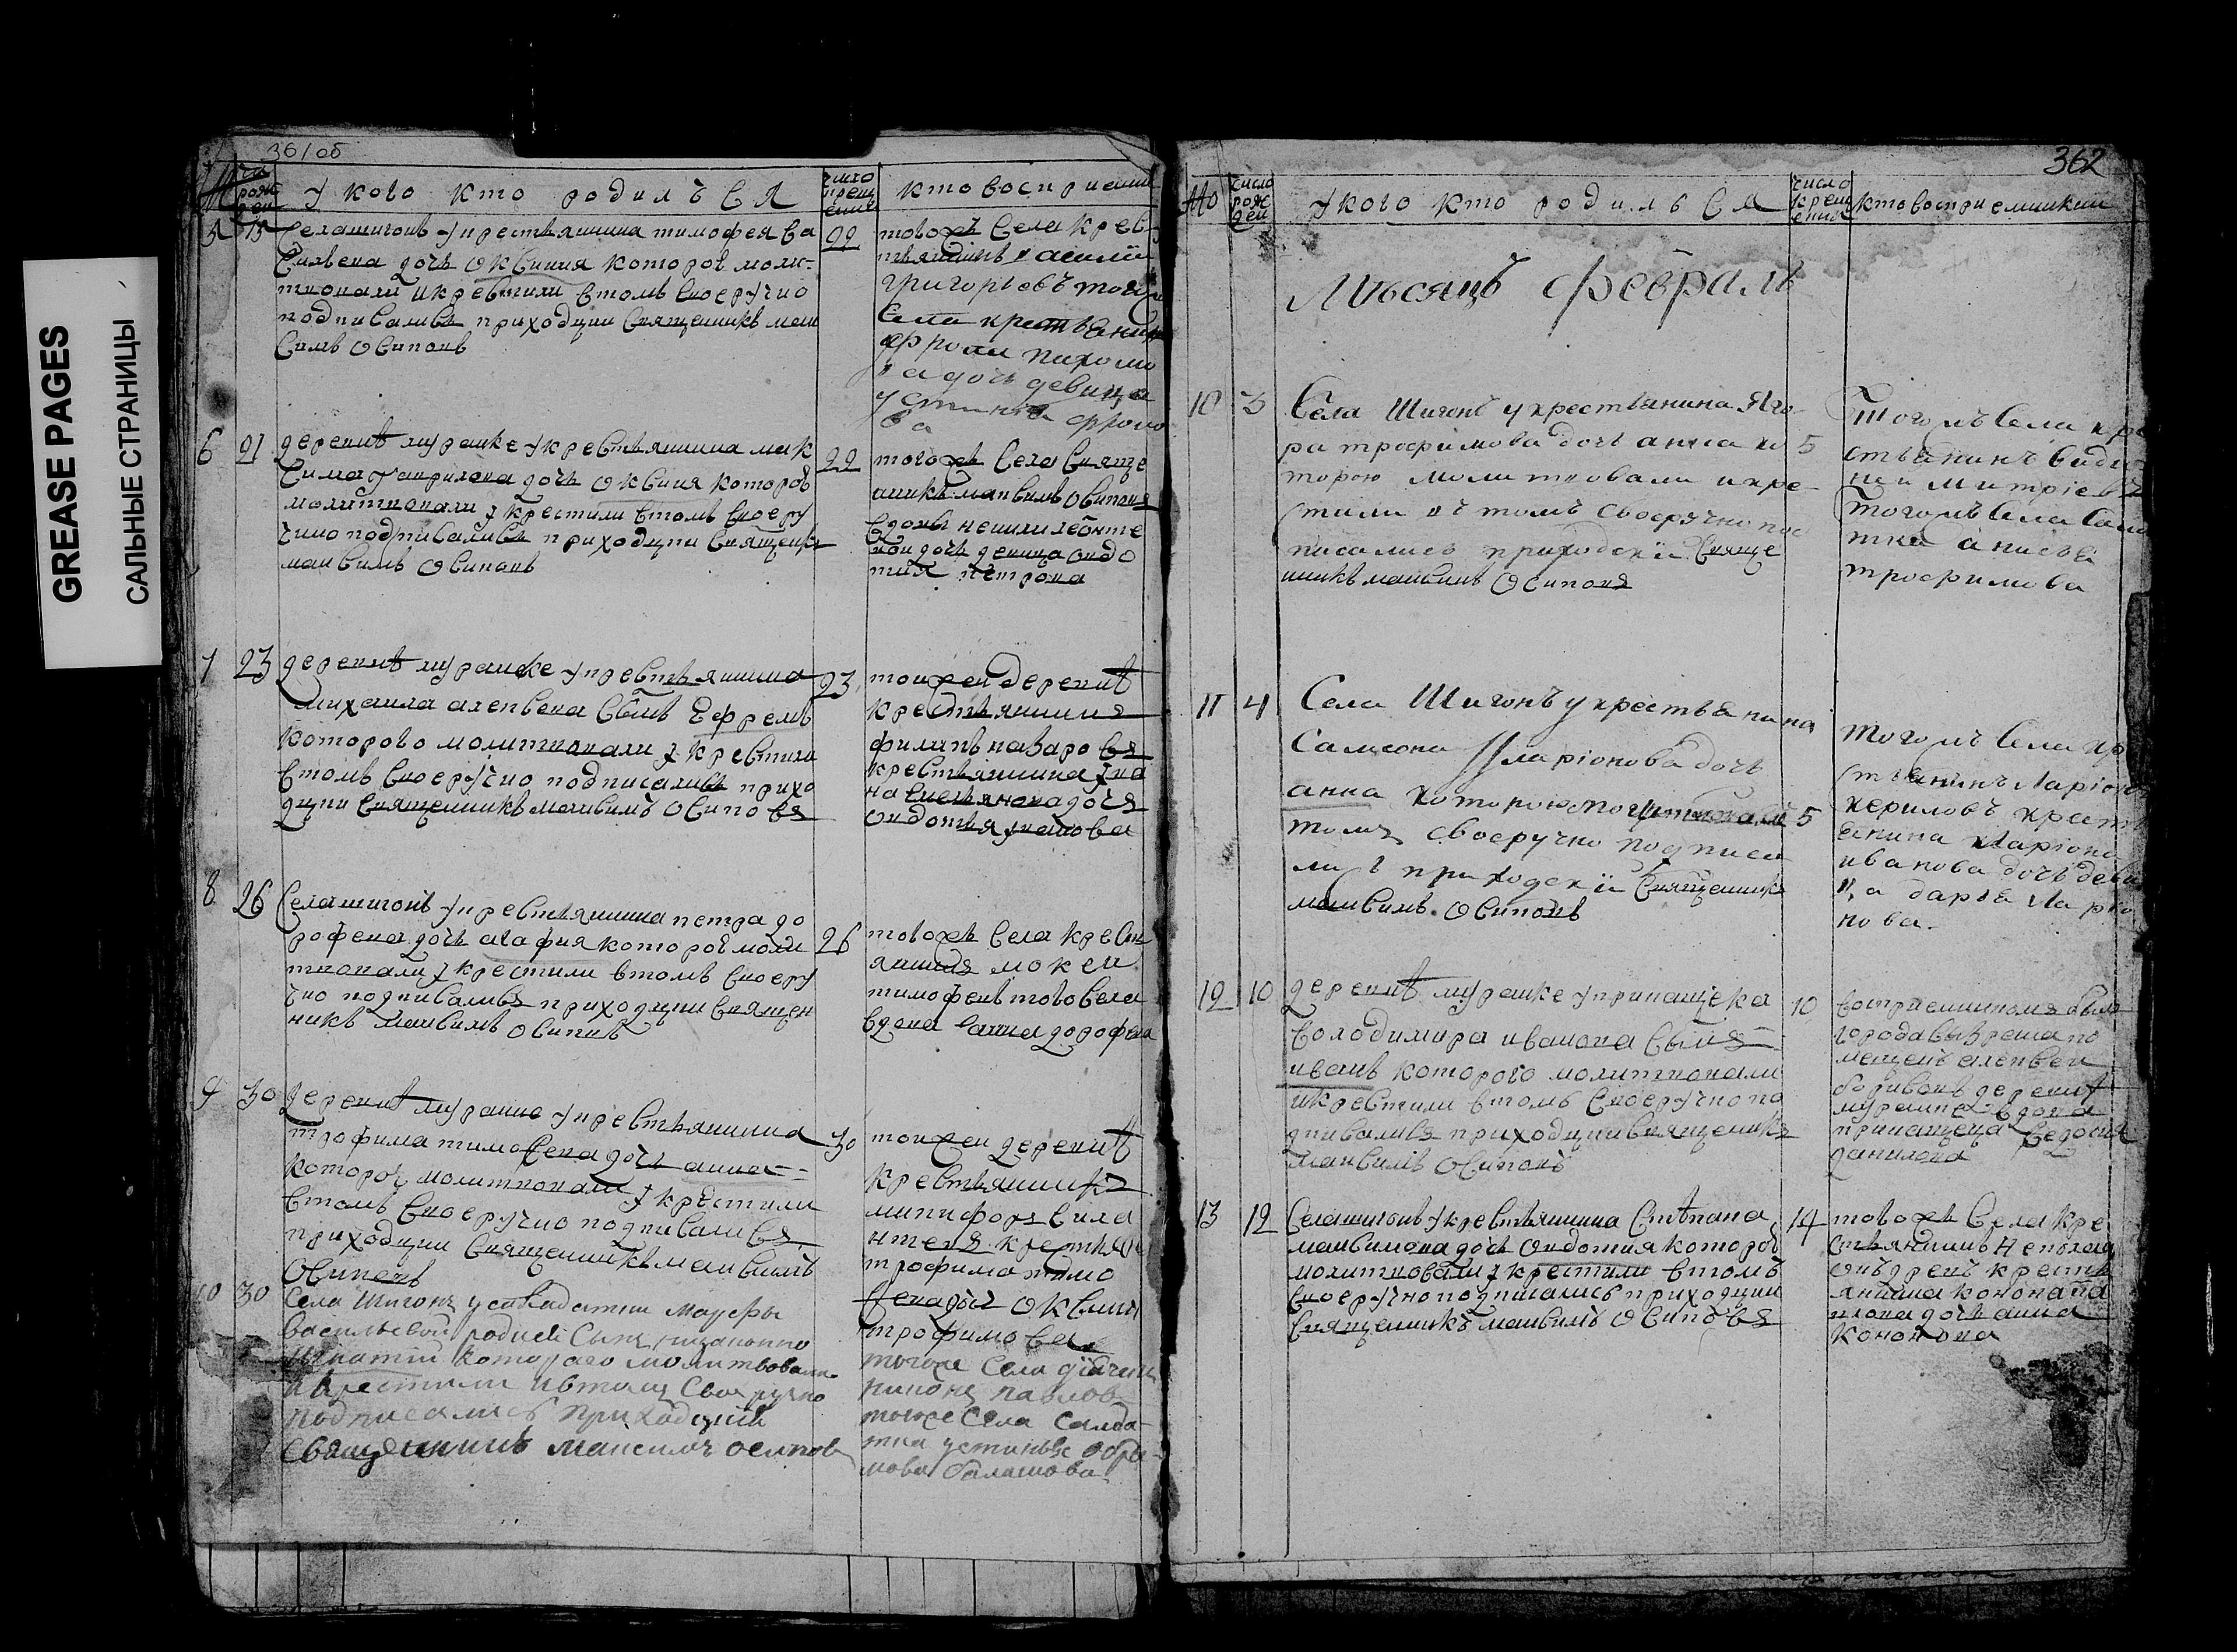 GREASE PAGES
САЛЬНЫЕ СТРАНИЦЫ
361 об
число рожден
У кого кто родилъся
число крещения
кто восприемники
5 15
Села шигонъ у крестьянина тимофея са
вильева дочь Оксиния которов моли-
твовали и крестили втомъ своеручно
подписался приходции священникъ мак
симъ Осиповъ
22
тогожъ села крес
тьянинъ васили
григорьевъ тогожъ
села крестьянина
фрола пахомо
ва дочь девица
устинья фроло
ва
6 21
деревнѣ мурашке у крестьянина мак
сима гаврилова дочь Оксиния которов
молитвовали и крестили втомъ своеру
чно подписался приходции священикъ
максимъ Осиповъ
22
тогожъ села свяще
никъ максимъ Осиповъ
дочь девица овдо
тия петрова
7 23
деревнѣ мурашке у крестьянина
михаила алексеева сынъ Ефремъ
которово молитвовали и крестили
втомъ своеручно подписался прихо
дции священникъ максимъ Осиповъ
23
тоижеи деревнѣ
крестьянинъ
филипъ назаровъ
крестьянина ива
на емельянова дочь
овдотья иванова
8 26
Села шигонъ у крестьянина петра до
рофеева дочь агафия которов моли
твовали и крестили втомъ своеру
чно подписался приходции священ
никъ максимъ Осиповъ
26
тогожъ села кресть
янинъ мокеи
тимофеивъ тогожъ села
вдова анна дорофеева
9 30
деревнѣ мурашке у крестьянина
трофима тимофеева дочь анна
которов молитвовали и крестили
втомъ своеручно подписался
приходции священникъ максимъ
Осиповъ
30
тоижеи деревнѣ
крестьянинъ
никифоръ сила
нтевъ крестьянина
трофима тимо
феева дочь Оксинья
трофимова
10 30
Села Шигонъ у салдатки марфы
васильевой родися сынъ незаконно
Игнатий котораго молитвовали
и крестили и втомъ своеручно
подписались приходский
священникъ максимъ осиповъ
тогоже села дьячекъ
павловъ
тогоже села салда
тка устинья абра
мова балашова
362
№
число рожден
У кого кто родилъся
число крещения
кто восприемники
Мѣсяцъ февраль
10 3
Села Шигонъ у крестьянина Яго-
ра трофимова дочь анна ко
торою молитвовали и кре-
стили въ томъ своеручно под
писались приходскiи свяще
никъ максимъ Осиповъ
5
Тогожъ села кре
стьянинъ
митрiевъ
тогожъ села салда
тка анисья
трофимова
11 4
Села Шигонъ у крестьянина
Самсона Иларiонова дочь
анна которою молитвовали
томъ своеручно подписа
лись приходскiи священникъ
максимъ Осиповъ
5
тогожъ села кре
стьянинъ Ларiонъ
кериловъ крестья
янина Ларiона
иванова дочь деви
ца дарья Ларио
нова.
12 10
деревнѣ мурашке у прикащека
володимира иванова сынъ
иванъ которого молитвовали
и крестили втомъ своеручно по
дписался приходции священникъ
максимъ Осиповъ
10
восприемникомъ былъ
города сызрана по
мещикъ алексеи
борисовъ деревнѣ
мурашке вдова
прикащеца федосия
данилова
13 12
Села шигонъ у крестьянина Стѣпана
максимова дочь овдотия которов
молитвовали и крестили втомъ
своеручно подписались приходции
священникъ максимъ Осиповъ
14
тогожъ села кре
стьянинъ
ондреивъ кресть
янина конона па
влова дочь анна
кононова